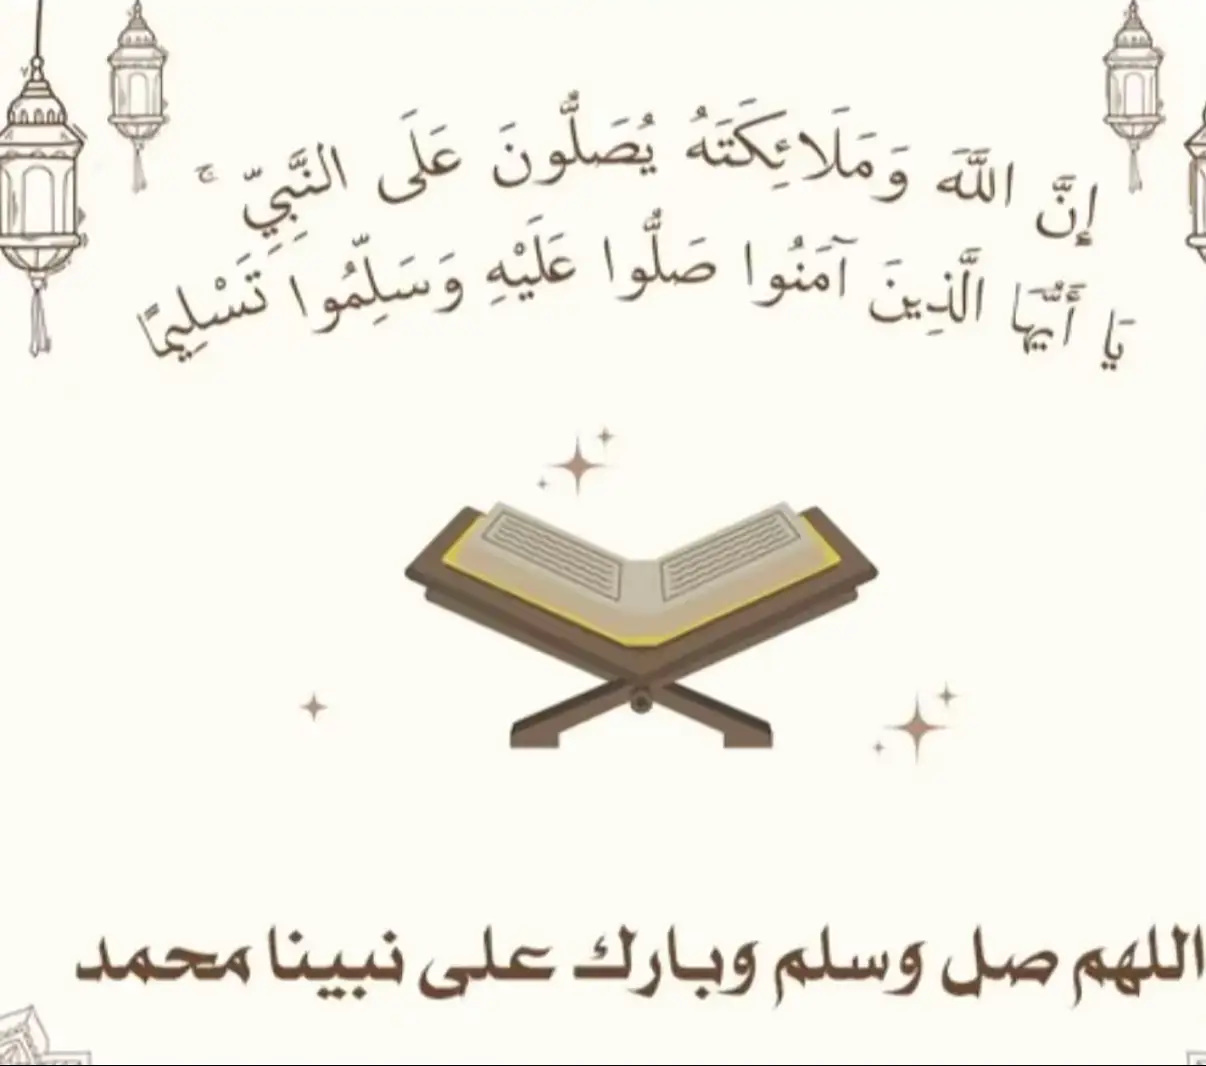 إِنَّ اللَّهَ وَمَلَائِكَتَهُ يُصَلُّونَ عَلَى النَّبِيِّ ۚ
يَا أَيُّهَا الَّذِينَ آمَنُوا صَلُّوا عَلَيْهِ وَسَلِّمُوا تَسْلِيمًا
اللهم صل وسلم وبارك على نبينا محمد